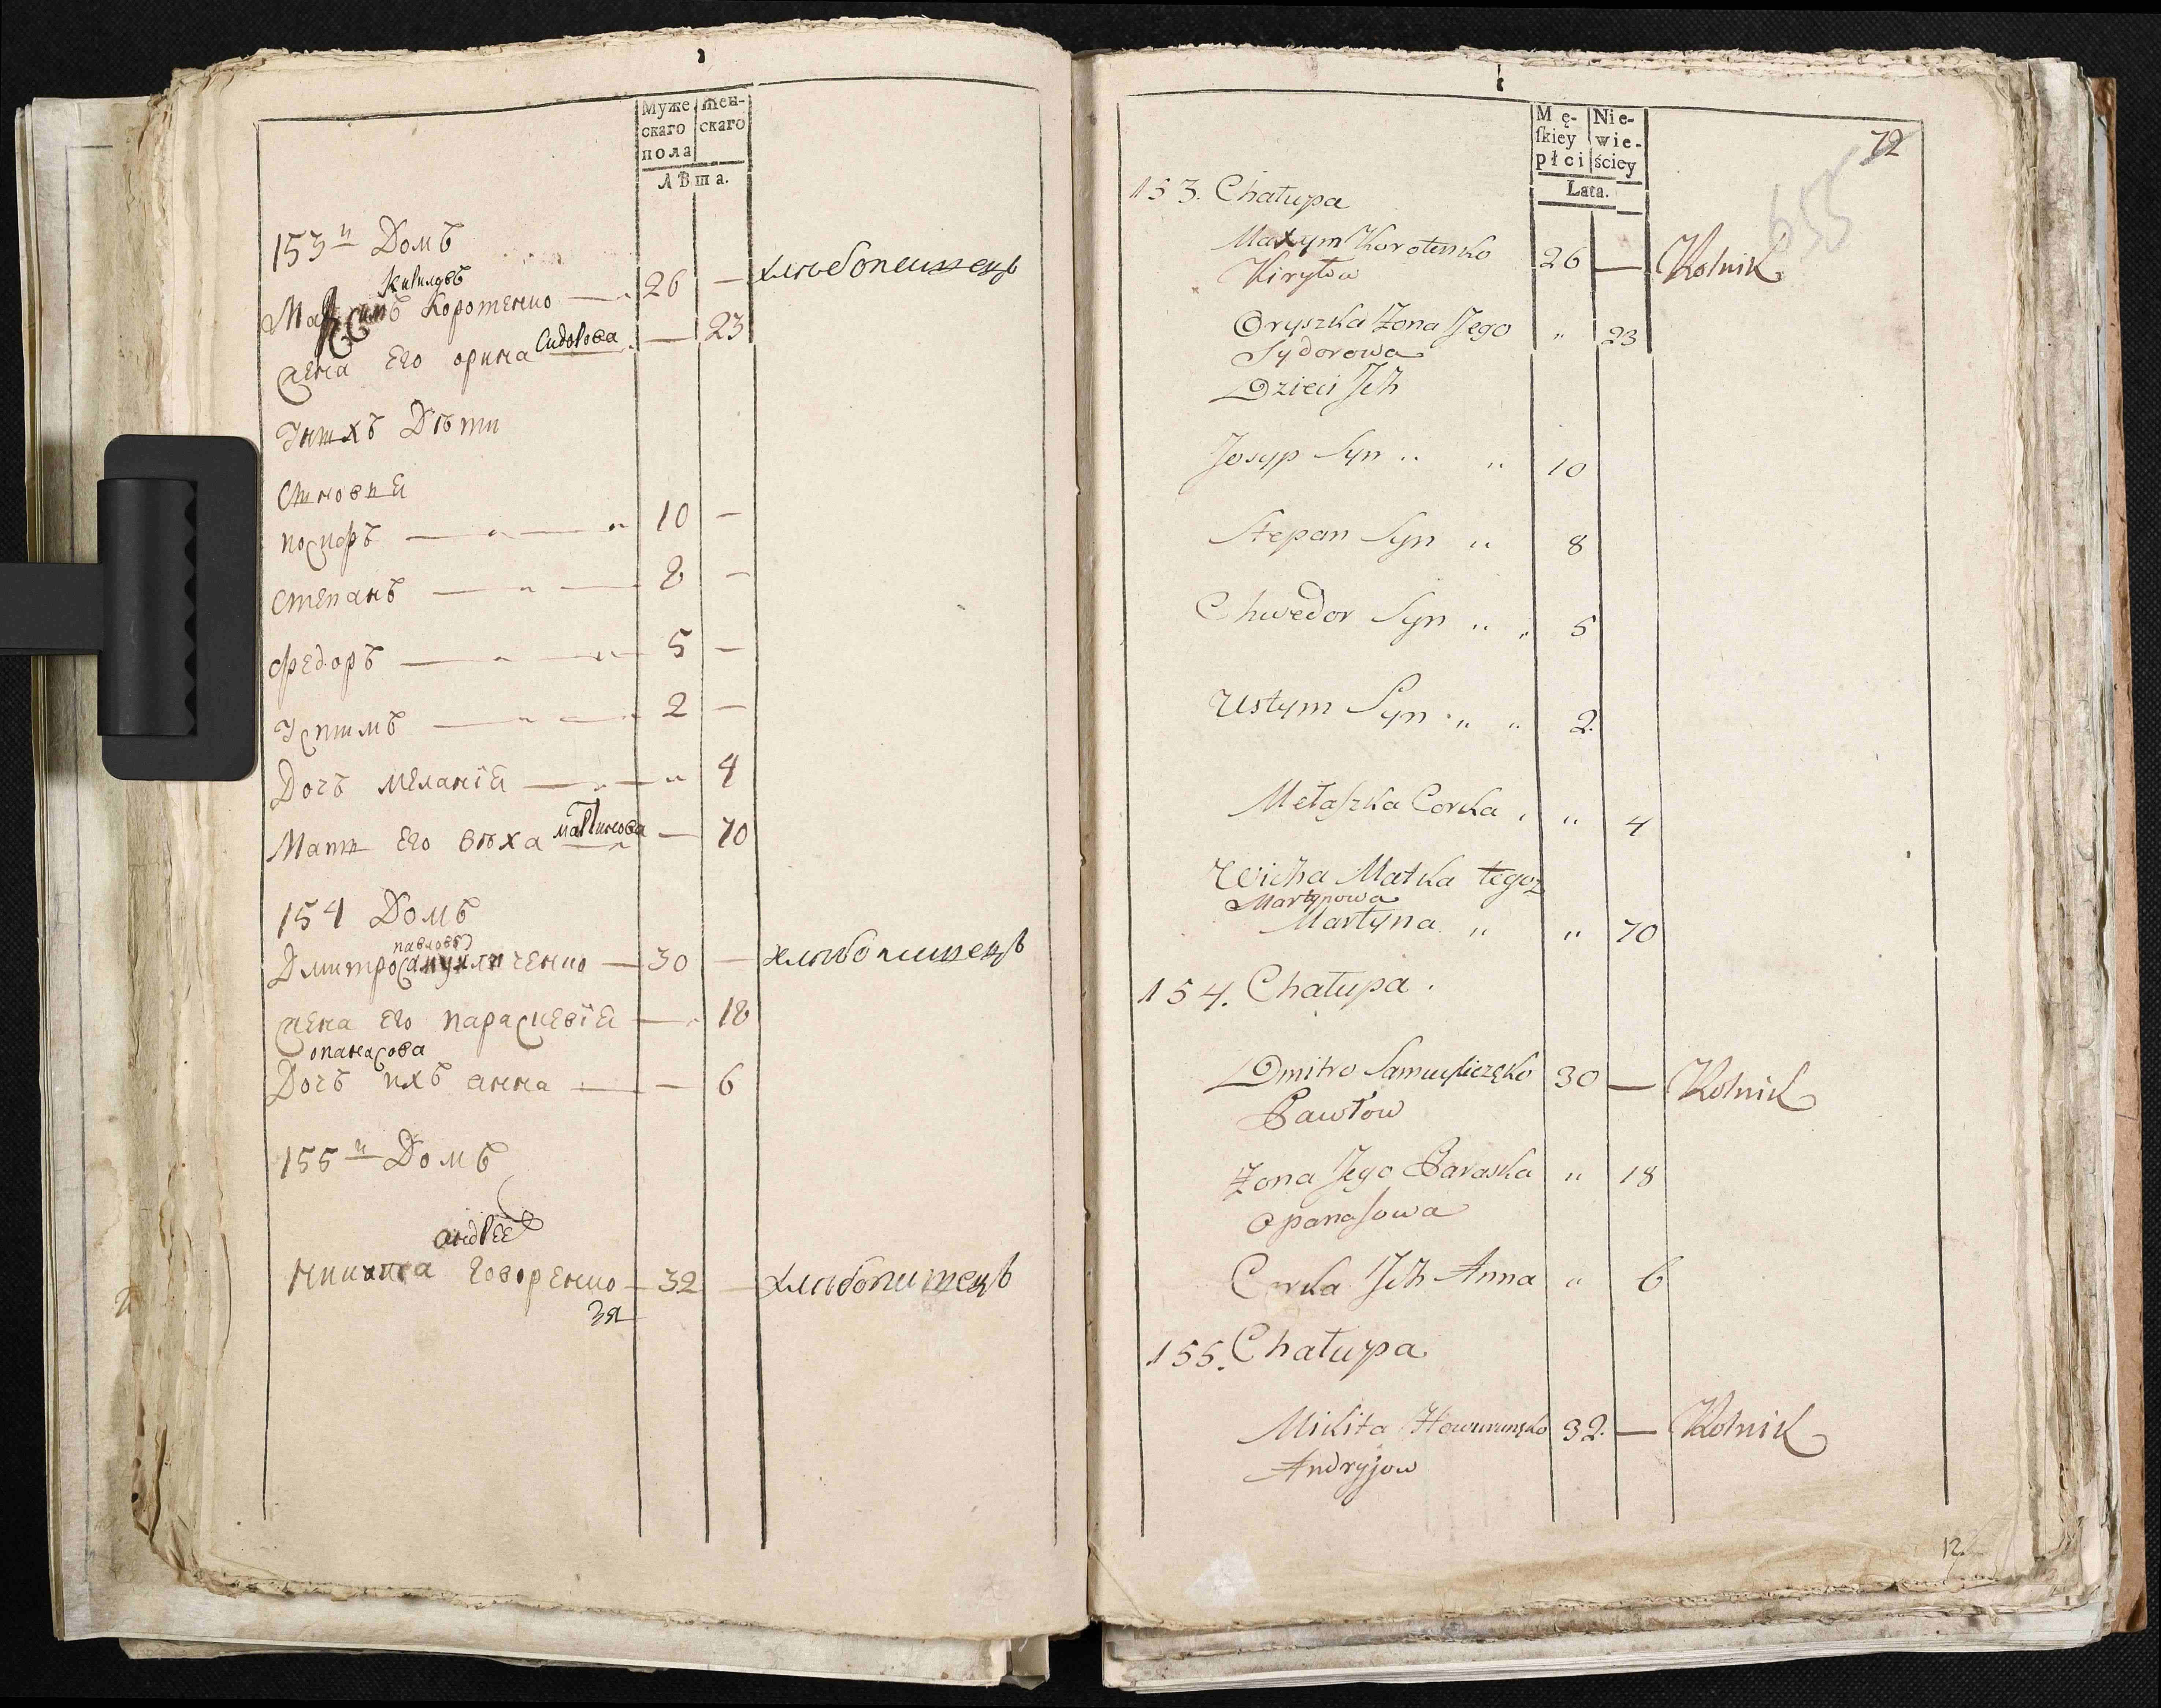 Муже
скаго
пола
Жен-
скаго
Лѣта.
153й Домъ
Кириловъ
Максимъ Коротенко — 26 — хлѣбопашецъ
жена Его орина Сидорова — 23
Унихъ Дѣти
Сыновья
иосифъ — 10 —
степанъ — 8 —
федоръ — 5 —
устимъ — 2 —
Дочъ меланія — 4
Мать Его вѣха мартинова — 70
154 Домъ
павловъ
Дмитро Самуйличенко — 30 — хлѣбопашецъ
жена Его параскевія — 18
опанасова
Дочъ ихъ анна — 6
155й Домъ
андреев
Никита Говоренко — 32 — хлѣбопашецъ
Mę-
skiey
płci
Nie-
wie-
ściey
Lata.
72
655
153. Chałupa
Maxym Korotenko 26 — Rolnik
Kiryłow
Oryszka Żona Jego „ 23
Sydorowa
Dzieci Jch
Josyp Syn „ „ 10
Stepan Syn „ 8
Chwedor Syn „ „ 5
Ustym Syn „ „ 2.
Melaszka Corka „ „ 4
Wicha Matka tegoż
Martynowa
Martyna „ „ 70
154. Chałupa.
Dmitro Samuyliczęko 30 — Rolnik
Pawłow
Żona Jego Paraska „ 18
Opanasowa
Corka Jch Anna „ 6
155. Chałupa
Mikita 32. — Rolnik
Andryjow
12.